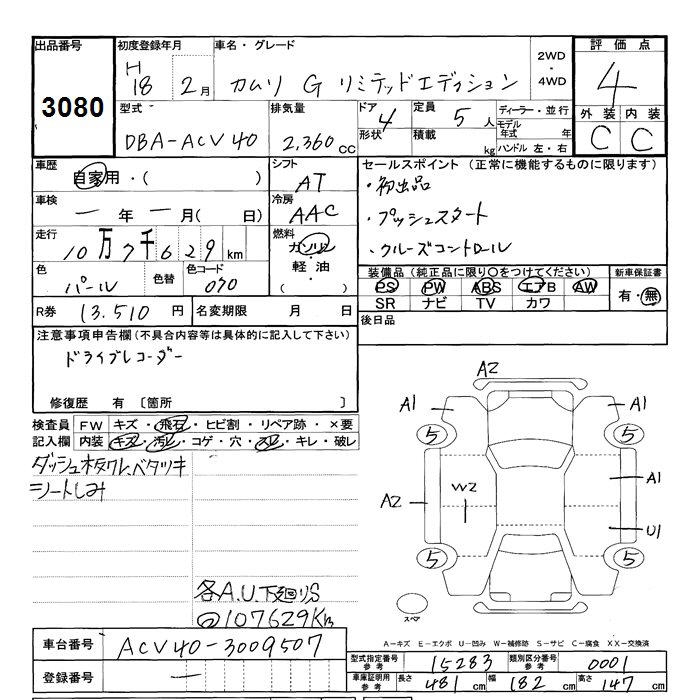 出品番号
3080
初度登録年月
H
18 2月
車名・グレード
カムリ G リミテッドエディション
2WD
・
4WD
評価点
4
外装 内装
C C
型式
DBA-ACV40
排気量
2,360 CC
ドア
4
形状
定員
5 人
積載
kg
ディーラー・並行
モデル
年式 年
ハンドル 左・右
車歴
自家用・( )
車検
一 年 一 月( 日)
走行
10万7千629 km
色
パール
色替
色コード
070
シフト
AT
冷房
AAC
燃料
ガソリン
・
軽油
・
( )
セールスポイント (正常に機能するものに限ります)
・初出品
・プッシュスタート
・クルーズコントロール
装備品(純正品に限り○をつけてください)
PS PW ABS エアB AW
SR ナビ TV カワ
新車保証書
有・無
後日品
R券 13,510 円
名変期限 月 日
注意事項申告欄(不具合内容等は具体的に記入して下さい)
ドライブレコーダー
修復歴 有 〔箇所 〕
検査員
記入欄
FW キズ・飛石・ヒビ割・リペア跡・×要
内装 キズ・汚レ・コゲ・穴・スレ・キレ・破レ
ダッシュ木タワレ、ベタツキ
シートしみ
各A.U.下廻り、S
107629Km
A2
A1
A1
5
5
A1
A2
W2
U1
5
5
スペア
A－キズ E－エクボ U－凹み W－補修跡 S－サビ C－腐食 XX－交換済
車台番号 ACV40-3009507
登録番号 一
型式指定番号
参考
15283
類別区分番号
参考
0001
車庫証明用
参考
長さ 481 cm 幅 182 cm 高さ 147 cm